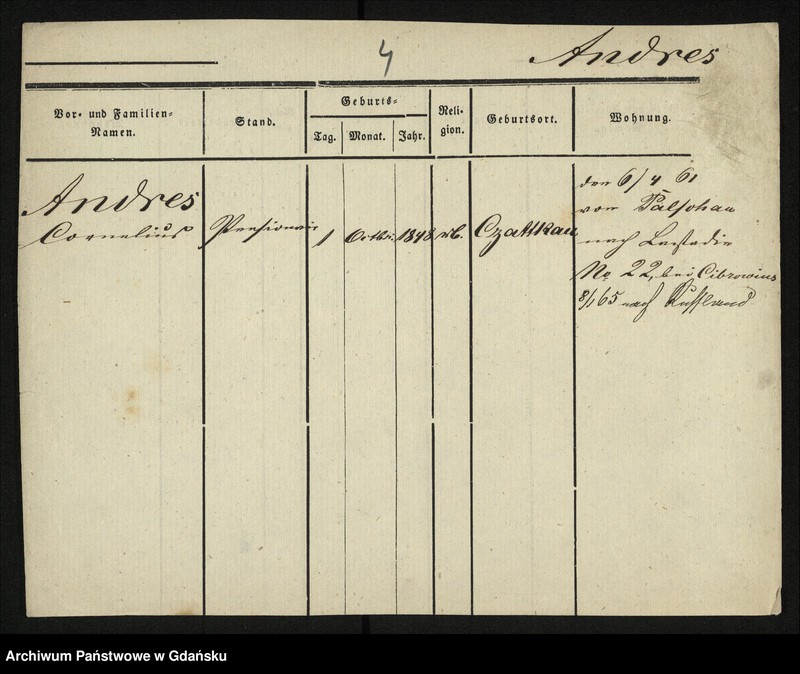 4
Andres
Vor- und Familien-
Namen.
Stand.
Geburts-
Tag.
Monat.
Jahr.
Reli-
gion.
Geburtsort.
Wohnung.
Andres
Cornelius
Pensionair
1
Octbr.
1848
Czattkau
den 6/4 61
von Palschau
nach Lastadie
No 22, bei Cibrowius
8/1 65 nach Russland
Archiwum Państwowe w Gdańsku